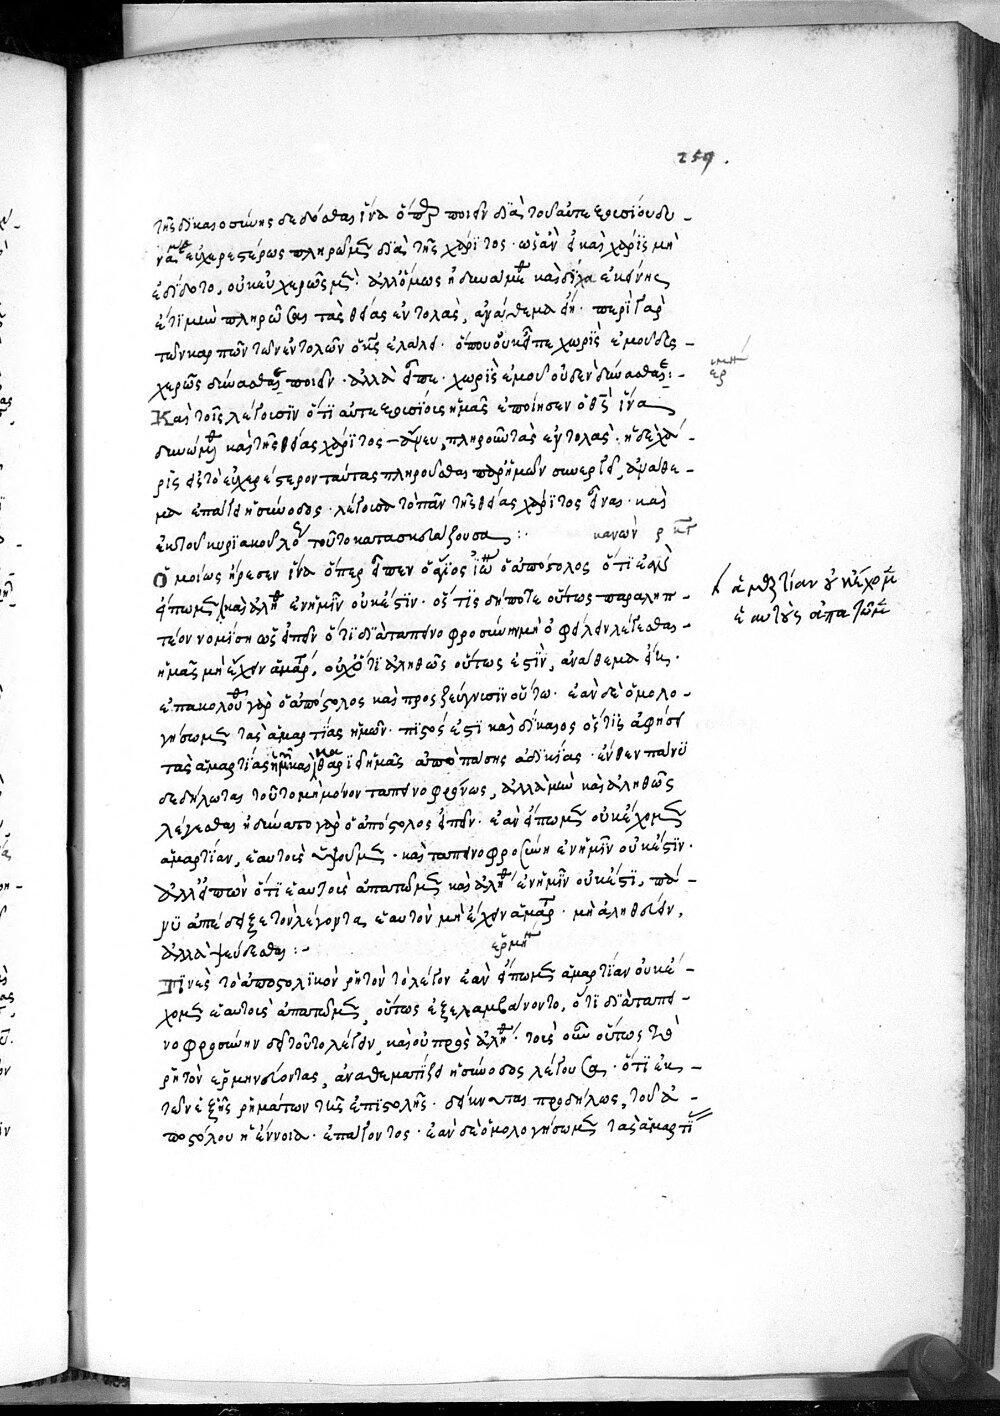 259.
τῆς δικαιοσύνης δεδόσθαι ἵνα ὅπερ ποιεῖν διὰ τοῦ αὐτεξουσίου δυ-
νάμεθα εὐχερεστέρως πληρῶμεν διὰ τῆς χάριτος· ὡσανεὶ καὶ χάρις μὴ
ἐδίδοτο, οὐκ εὐχερῶς μὲν· ἀλλ' ὅμως ἠδυνάμεθα καὶ δίχα ἐκείνης
ἔτι μὴν πληρῶσαι τὰς θείας ἐντολὰς, ἀνάθεμα εἴη· περὶ γὰρ
τῶν καρπῶν τῶν ἐντολῶν ὁ κύριος ἐλάλει· ὅπου οὐκ εἶπε χωρὶς ἐμοῦ δυς-
χερῶς δύνασθαι ποιεῖν· ἀλλὰ εἶπε· χωρὶς ἐμοῦ οὐδὲν δύνασθαι:-
Καὶ τοῖς λέγουσιν ὅτι αὐτεξουσίους ἡμᾶς ἐποίησεν ὁ θεὸς ἵνα
δυνώμεθα καὶ τῆς θείας χάριτος ἄνευ, πληροῦν τὰς ἐντολὰς· ἡ δὲ χά-
ρις εἰς τὸ εὐχερέστερον ταύτας πληροῦσθαι παρ' ἡμῶν συνεργεῖ, ἀνάθε-
μα ἐπάγει ἡ σύνοδος· λέγουσα τὸ πᾶν τῆς θείας χάριτος εἶναι· καὶ
ἐκ τοῦ κυριακοῦ λόγου τοῦτο κατασκευάζουσα:· κανὼν ρκγ
Ὁμοίως ἤρεσεν ἵνα ὅπερ εἶπεν ὁ ἅγιος Ἰωάννης ὁ ἀπόστολος ὅτι ἐὰν
εἴπωμεν καὶ ἀλήθεια ἐν ἡμῖν οὐκ ἔστιν. ὅστις δήποτε οὕτως παραληπ-
τέον νομίσῃ ὡς εἰπεῖν ὅτι διὰ ταπεινοφροσύνην μὴ ὀφείλειν λέγεσθαι
ἡμᾶς μὴ ἔχειν ἁμαρτίαν, οὐχ' ὅτι ἀληθῶς οὕτως ἐστὶν, ἀνάθεμα εἴη.
ἐπακολουθεῖ γὰρ ὁ ἀπόστολος καὶ προσζεύγνυσιν οὕτω· ἐὰν δὲ ὁμολο-
γήσωμεν τὰς ἁμαρτίας ἡμῶν· πιστός ἐστι καὶ δίκαιος ὅστις ἀφήσει
τὰς ἁμαρτίας ἡμῖν καὶ καθαρίσει ἡμᾶς ἀπὸ πάσης ἀδικίας· ἔνθεν πάνυ
δεδήλωται τοῦτο μὴ μόνον ταπεινοφρόνως, ἀλλὰ μὴν καὶ ἀληθῶς
λέγεσθαι ἠδύνατο γὰρ ὁ ἀπόστολος εἰπεῖν· ἐὰν εἴπωμεν οὐκ ἔχομεν
ἁμαρτίαν, ἑαυτοὺς ὑψοῦμεν· καὶ ταπεινοφροσύνη ἐν ἡμῖν οὐκ ἔστιν·
ἀλλ' εἰπὼν ὅτι ἑαυτοὺς ἀπατῶμεν καὶ ἀλήθεια ἐν ἡμῖν οὐκ ἔστι, πά-
νυ ἀπέδειξε τὸν λέγοντα, ἑαυτὸν μὴ ἔχειν ἁμαρτίαν· μὴ ἀληθεύειν,
ἀλλὰ ψεύδεσθαι:- ἑρμη
Τινὲς τὸ ἀποστολικὸν ῥητὸν τὸ λέγον ἐὰν εἴπωμεν ἁμαρτίαν οὐκ ἔ-
χομεν ἑαυτοὺς ἀπατῶμεν, οὕτως ἐξελαμβάνοντο, ὅτι διὰ ταπει-
νοφροσύνην δεῖ τοῦτο λέγειν, καὶ οὐ πρὸς ἀλήθειαν· τοὺς οὖν οὕπως τὸ
ῥητὸν ἑρμηνεύοντας, ἀναθεματίζει ἡ σύνοδος λέγουσα· ὅτι ἐκ
τῶν ἑξῆς ῥημάτων τῆς ἐπιστολῆς· δείκνυται προδήλως, τοῦ ἀ-
ποστόλου ἡ ἔννοια· ἐπάγοντος· ἐὰν δὲ ὁμολογήσωμεν τὰς ἁμαρτί
ἑρμη
ἁμαρτίαν οὐκ ἔχομεν
ἑαυτοὺς ἀπατῶμεν